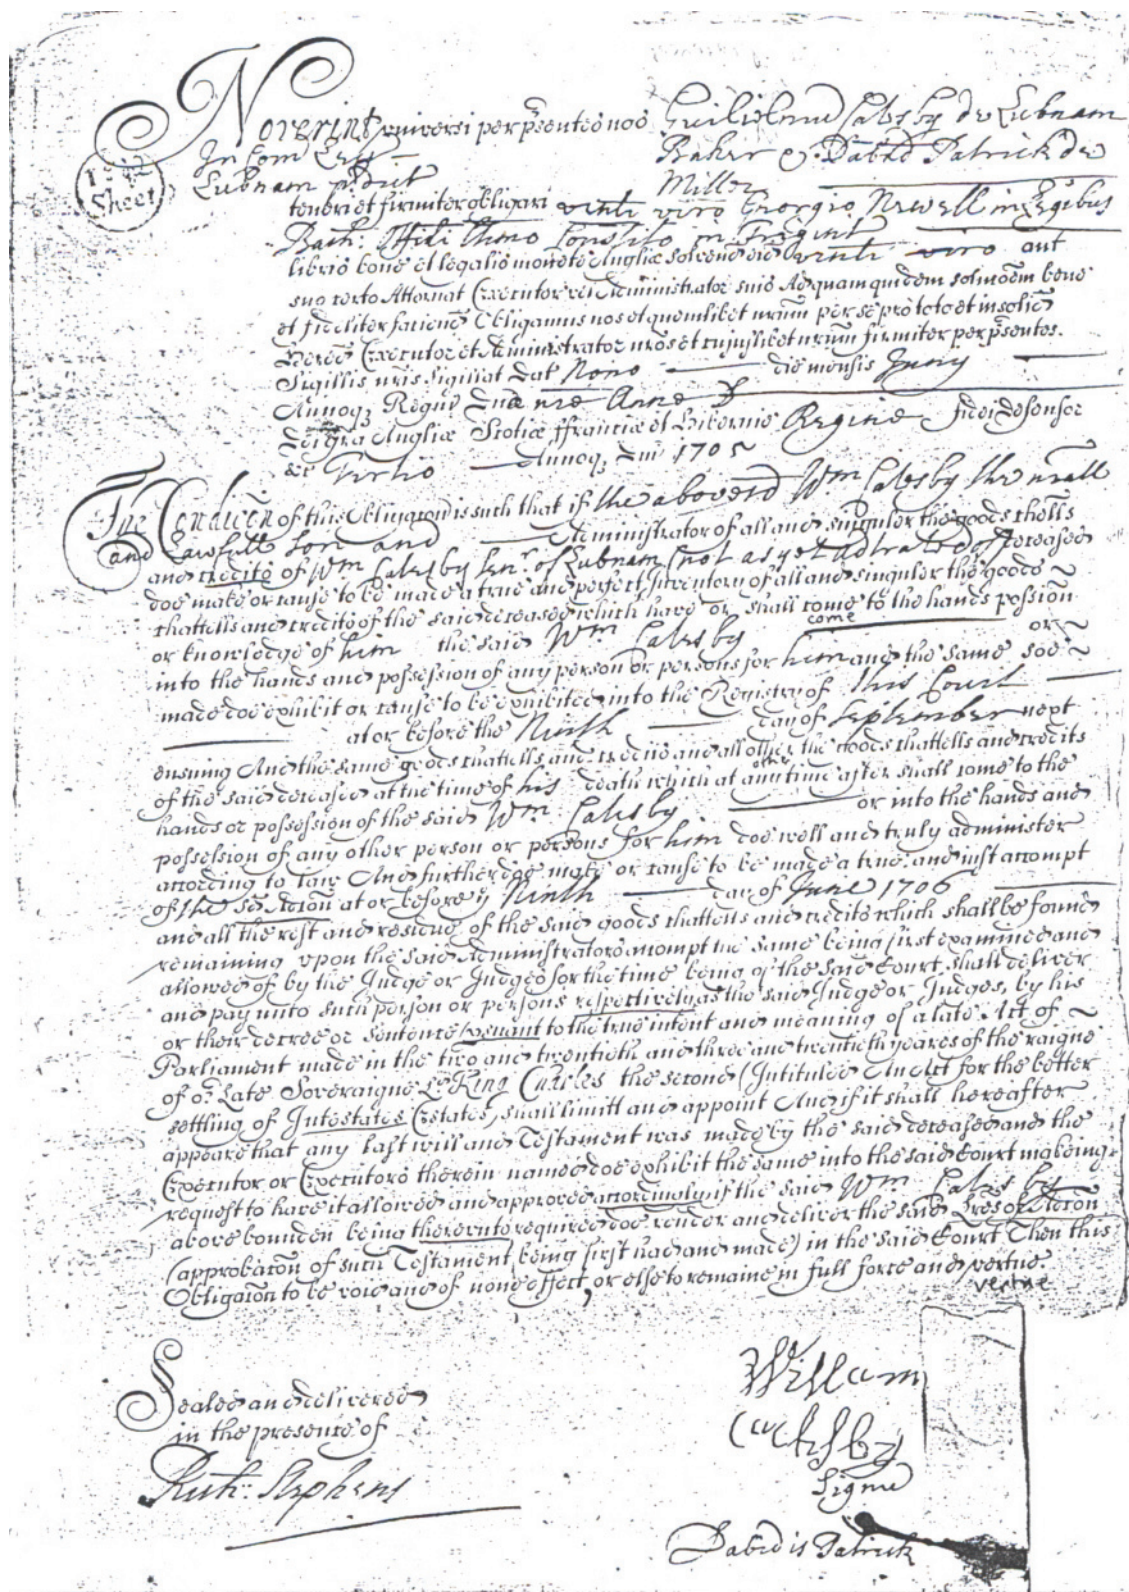 Noverint universi per p'sentes nos Guilielmu Catesby de Lubnam
In Com Leic Baker & David Patrick de
1st Sheet
Lubnam p'dict Miller
teneri et firmiter obligari venli viro Georgio Newell in Legibus
Bach: in Trigint
libris bone et legalis monete Angliæ solvend eid venli viro aut
suo certo Attornat Executor vel Administrator suis Ad quam quidem soluc̃oem bene
et fideliter faciend Obligamus nos et quemlibet nr̃um per se pro toto et in solid
Hered Executor et Administrator nr̃os et cujuslibet nr̃um firmiter per p'sentes.
Sigillis nr̃is Sigillat Dat Nono die mensis Juny
Annoq3 Regni Dnæ nre Anne D
Dei gr̃a Angliæ Scotiæ ffranciæ et Hiberniæ Reginæ fidei defensor
&c Tertio Annoq3 Dni 1705
The Condic̃on of this Obligac̃on is such that if the abovesd Wm Catesby the nrall
and Lawfull Son and Administrator of all and singuler the goods chells
and credits of Wm Catesby Senr. of Lubnam (not as yet Adtrated) deceased
doe make or cause to be made a true and perfect Inventory of all and singuler the goods
chattells and credits of the said deceased which have or shall come to the hands possion
come
or knowledge of him the said Wm Catesby or
into the hands and possession of any person or persons for him and the same soe
made doe exhibit or cause to be exhibited into the Registry of this Court
at or before the Ninth day of September next
ensuing And the same goods chattells and credits and all other the goods chattells and credits
of the said deceased at the time of his death which at any time after shall come to the
hands or possession of the said Wm. Catesby or into the hands and
possession of any other person or persons for him doe well and truly administer
according to Law And further doe make or cause to be made a true and just accompt
of the sd Ac̃on at or before ye Ninth day of June 1706
and all the rest and residue of the said goods chattells and credits which shall be found
remaining upon the said Administrators accompt the same being first examined and
allowed of by the Judge or Judges for the time being of the said Court, shall deliver
and pay unto such person or persons respectively as the said Judge or Judges, by his
or their decree or sentence psuant to the true intent and meaning of a late Act of
Parliament made in the two and twentieth and three and twentieth yeares of the raigne
of or. Late Soveraigne Ld King Charles the second (Intituled An Act for the better
settling of Intestates Estates) shall limitt and appoint And if it shall hereafter
appeare that any last will and Testament was made by the said deceased and the
Executor or Executors therein named doe exhibit the same into the said Court makeing
request to have it allowed and approved accordingly, if the said Wm Catesby
above bounden being thereunto required doe render and deliver the said Lr̃es of Ac̃on
(approbac̃on of such Testament being first had and made) in the said Court Then this
Obligac̃on to be void and of none effect, or else to remaine in full force and vertue.
vertue
Sealed and delivered
in the presence of
Ruth: Stephens
William
Catesby
Signu
David is Patrick